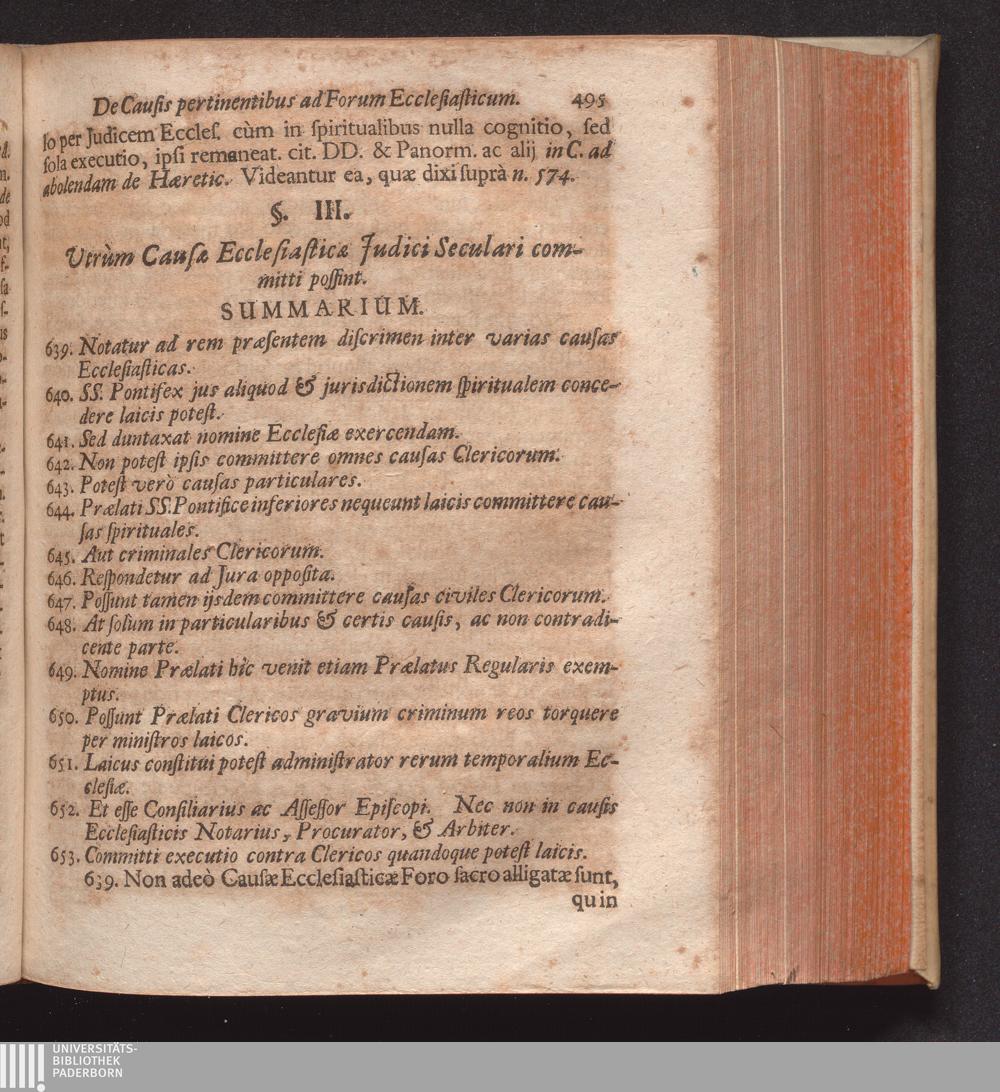 De Causis pertinentibus ad Forum Ecclesiasticum. 495
lo per Judicem Eccles. cùm in spiritualibus nulla cognitio, sed
sola executio, ipsi remaneat. cit. DD. & Panorm. ac alij in C. ad
abolendam de Hæretic. Videantur ea, quæ dixi suprà n. 574.
§. III.
Utrùm Causæ Ecclesiasticæ Judici Seculari com-
mitti possint.
SUMMARIUM.
639. Notatur ad rem præsentem discrimen inter varias causas
Ecclesiasticas.
640. SS. Pontifex jus aliquod & jurisdictionem spiritualem conce-
dere laicis potest.
641. Sed duntaxat nomine Ecclesiæ exercendam.
642. Non potest ipsis committere omnes causas Clericorum.
643. Potest verò causas particulares.
644. Prælati SS. Pontifice inferiores nequeunt laicis committere cau-
sas spirituales.
645. Aut criminales Clericorum.
646. Respondetur ad Jura opposita.
647. Possunt tamen ijsdem committere causas civiles Clericorum.
648. At solùm in particularibus & certis causis, ac non contradi-
cente parte.
649. Nomine Prælati hîc venit etiam Prælatus Regularis exem-
ptus.
650. Possunt Prælati Clericos gravium criminum reos torquere
per ministros laicos.
651. Laicus constitui potest administrator rerum temporalium Ec-
clesiæ.
652. Et esse Consiliarius ac Assessor Episcopi. Nec non in causis
Ecclesiasticis Notarius, Procurator, & Arbiter.
653. Committi executio contra Clericos quandoque potest laicis.
639. Non adeò Causæ Ecclesiasticæ Foro sacro alligatæ sunt,
quin
UNIVERSITÄTS-
BIBLIOTHEK
PADERBORN